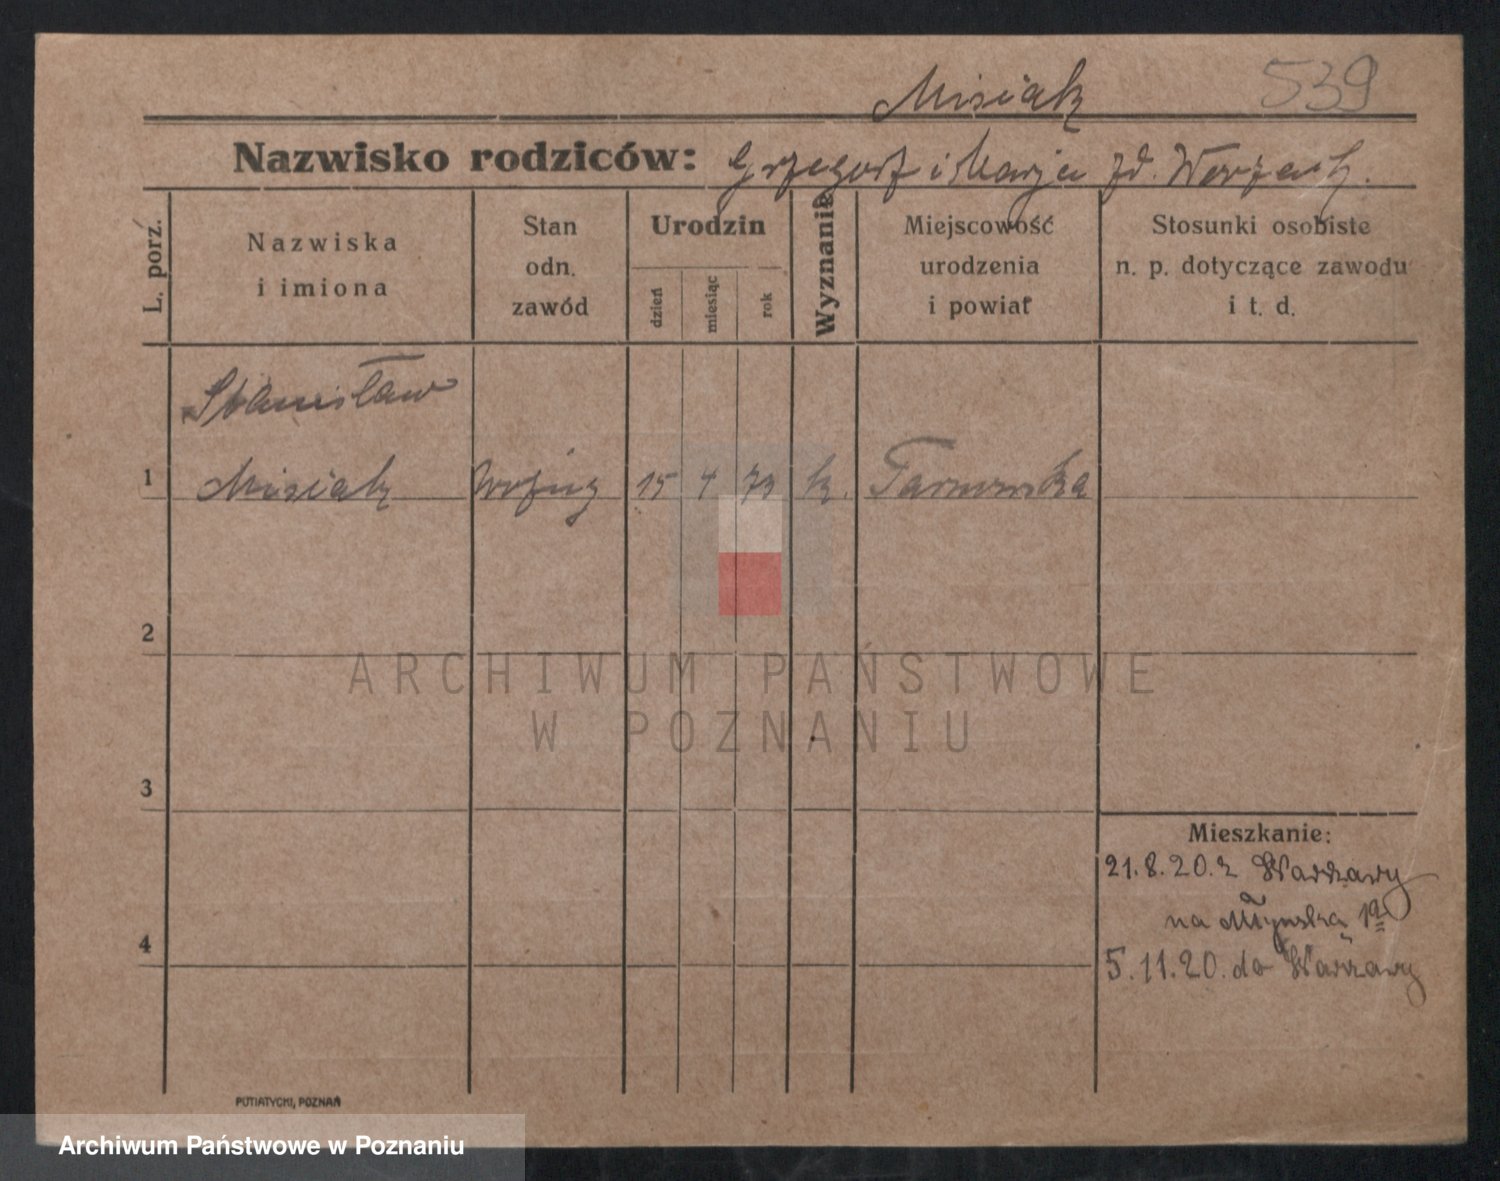 Misiak 539
Nazwisko rodziców: Grzegorz i Marja zd.
L. porz.
Nazwiska
i imiona
Stan
odn.
zawód
Urodzin
dzień
miesiąc
rok
Wyznanie
Miejscowość
urodzenia
i powiat
Stosunki osobiste
n. p. dotyczące zawodu
i t. d.
Stanisław
1 Misiak Woźny 15 4 73 k.
2
ARCHIWUM PAŃSTWOWE
W POZNANIU
3
Mieszkanie:
21.8.20. z Warszawy
na Młyńską 1a
4
5.11.20. do Warszawy
PUTIATYCKI, POZNAŃ
Archiwum Państwowe w Poznaniu